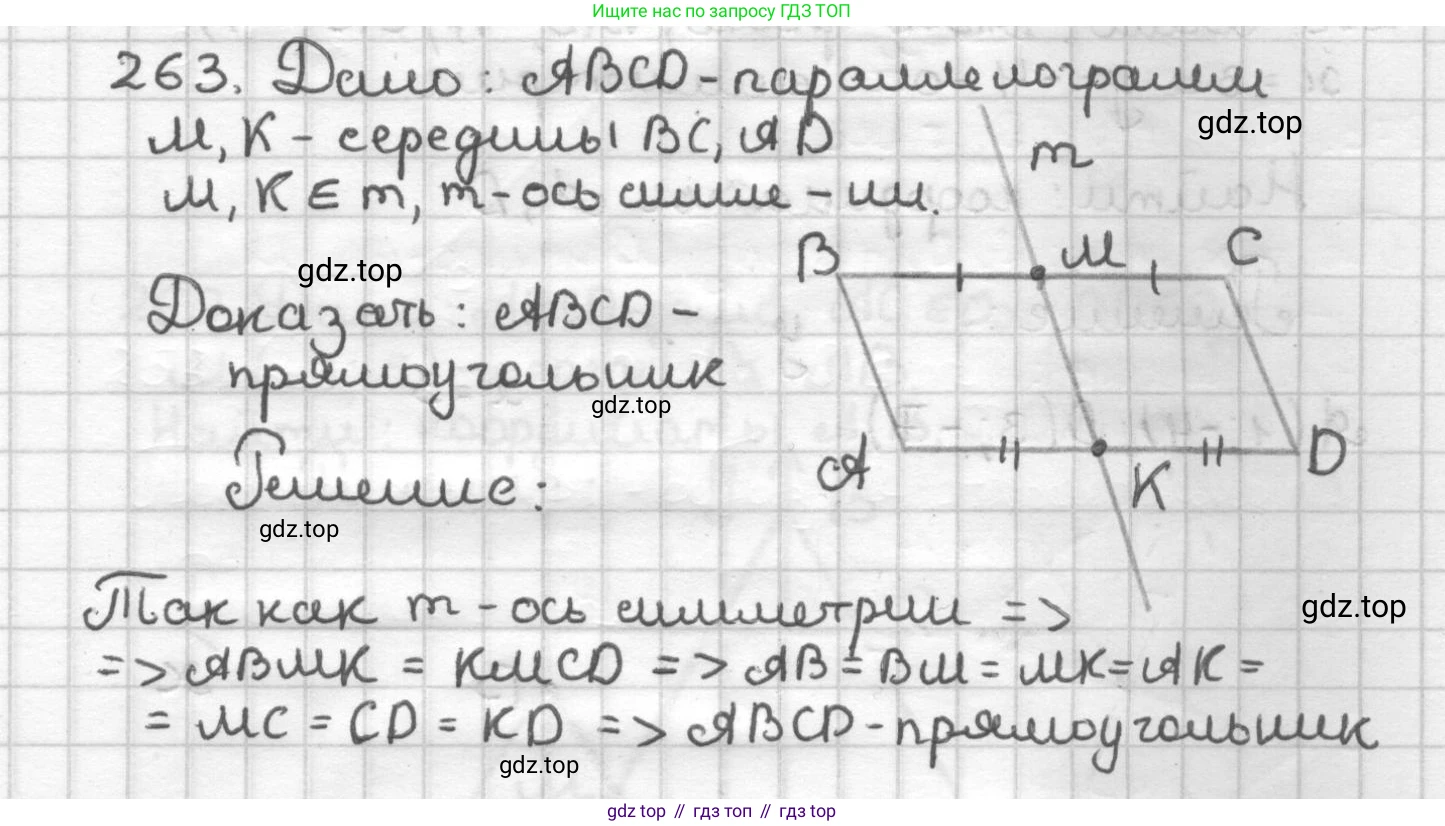 Ищите нас по запросу ГДЗ ТОП
263. Дано: ABCD - параллелограмм
gdz.top
M, K - середины BC, AD
m
M, K ∈ m, m - ось симме - ии.
B
M
C
gdz.top
Доказать: ABCD -
прямоугольник
gdz.top
A
K
D
Решение:
gdz.top
Так как m - ось симметрии =>
gdz.top
=> ABMK = KMCD => AB = BM = MK = AK =
= MC = CD = KD => ABCD - прямоугольник
gdz.top
gdz top // гдз топ // gdz top